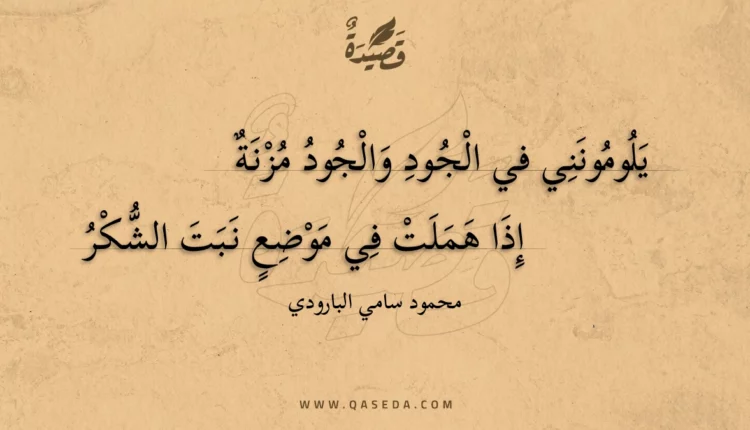 قَصِيدَةٌ
يَلُومُونَنِي في الْجُودِ وَالْجُودُ مُزْنَةٌ
إِذَا هَمَلَتْ فِي مَوْضِعٍ نَبَتَ الشُّكْرُ
محمود سامي البارودي
WWW.QASEDA.COM